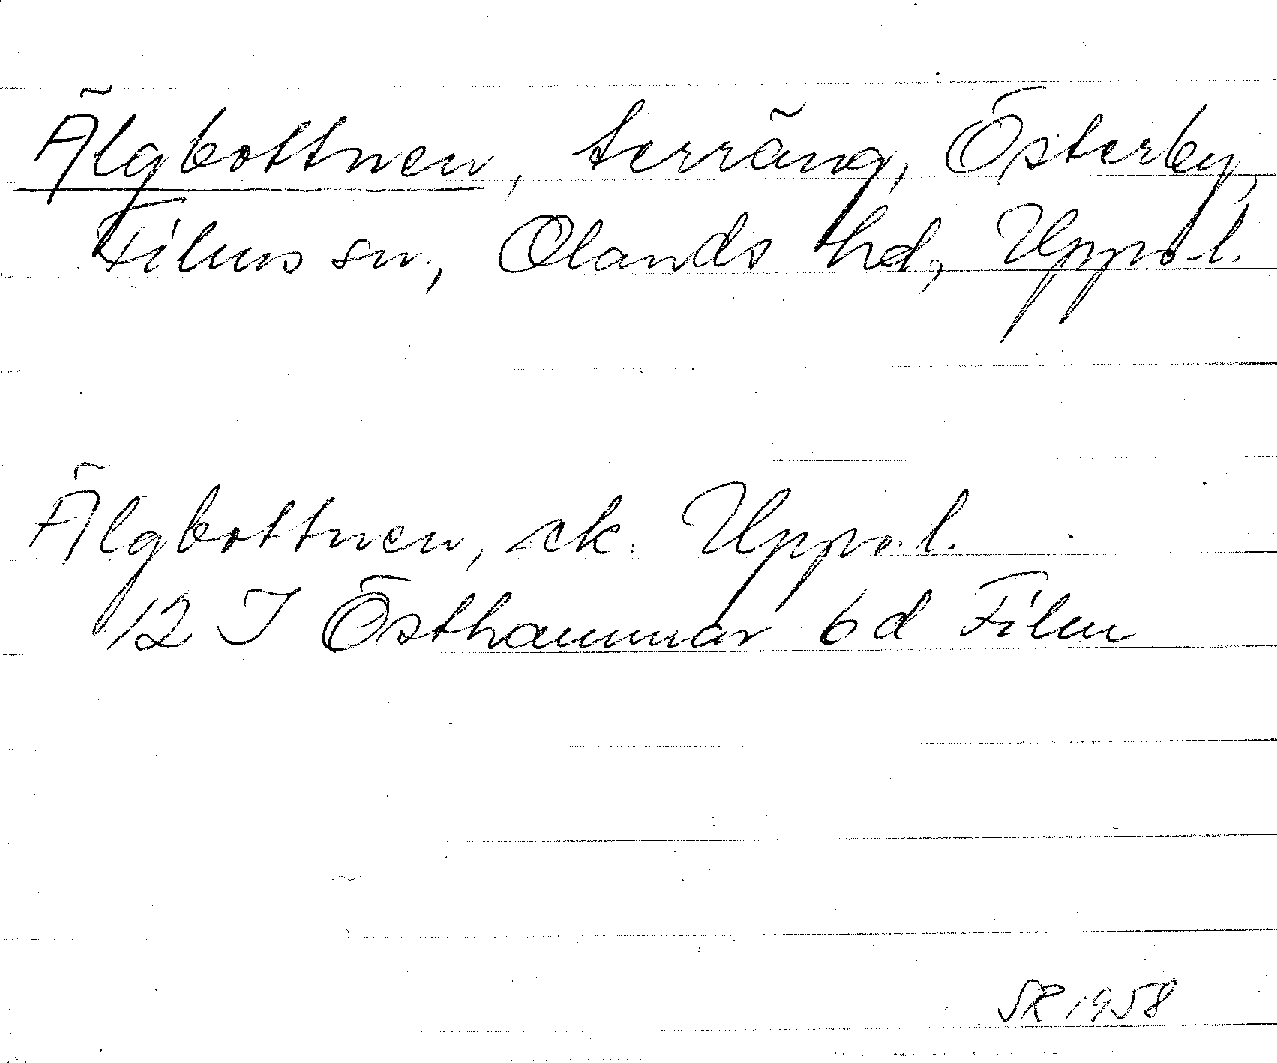 Älgbottnen, terräng, Österby,
Films sn, Olands hd, Upps.l.
Älgbottnen, ek. Upps.l.
12 I Östhammar 6d Film
SR 1958